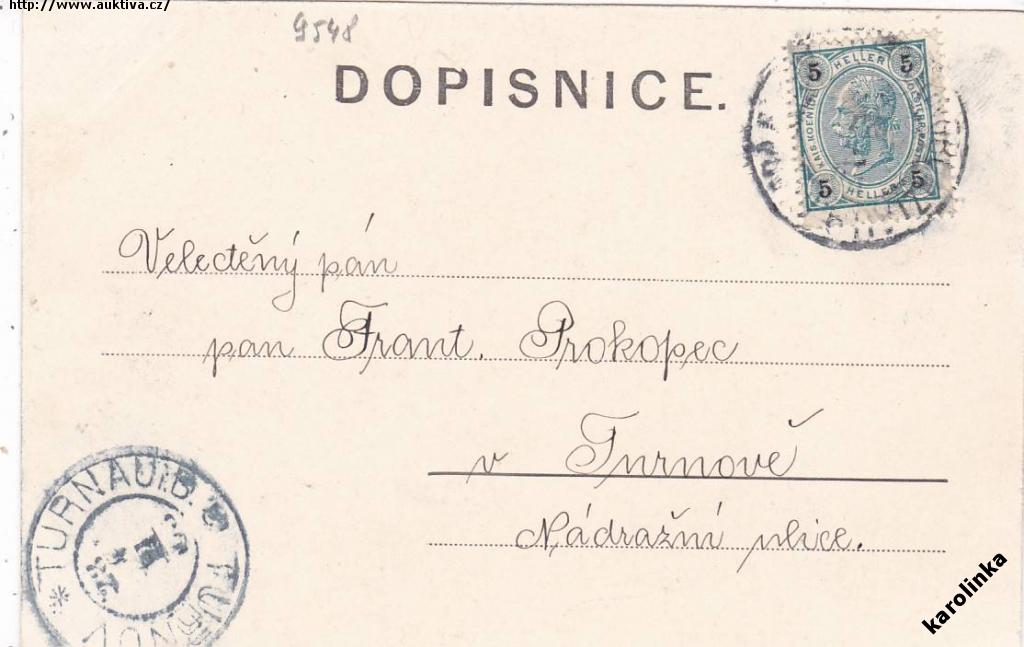 http://www.auktiva.cz/
9548
DOPISNICE.
5 HELLER 5
5 HELLER 5
Velectěný pán
pan Frant. Prokopec
v Turnově
Nádražní ulice.
* TURNAU i. B.
TURNOV
karolinka